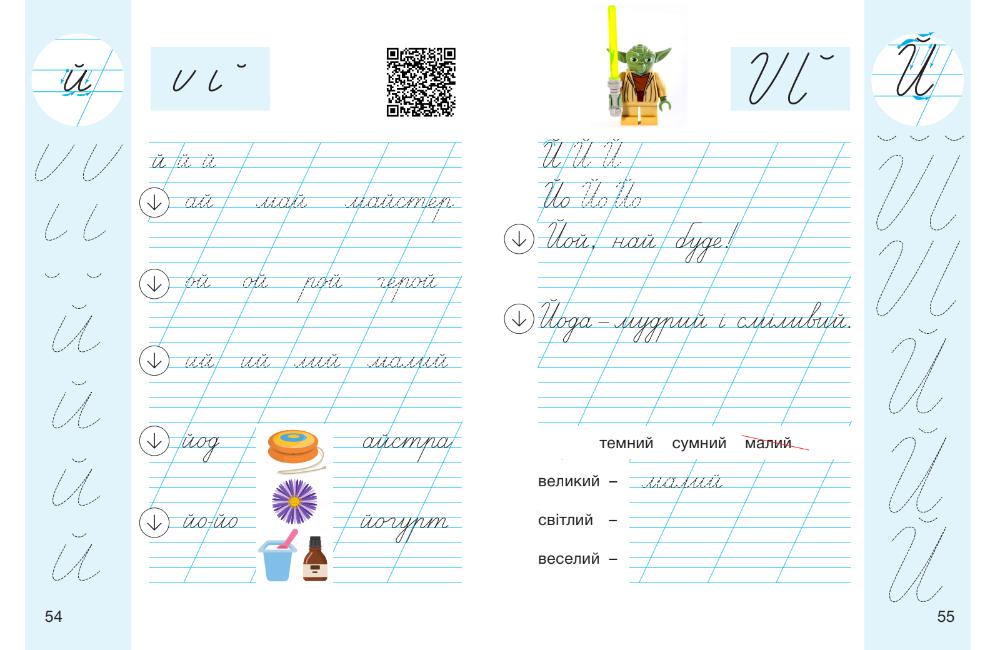 й
й й й
ай май майстер
ой ой рой герой
ий ий лий малий
йод айстра
йо-йо йогурт
й
й
й
й
54
Й
Й Й Й
Йо Йо Йо
Йой, най буде!
Йода – мудрий і сміливий.
темний сумний малий
великий – малий
світлий –
веселий –
Й
Й
Й
55